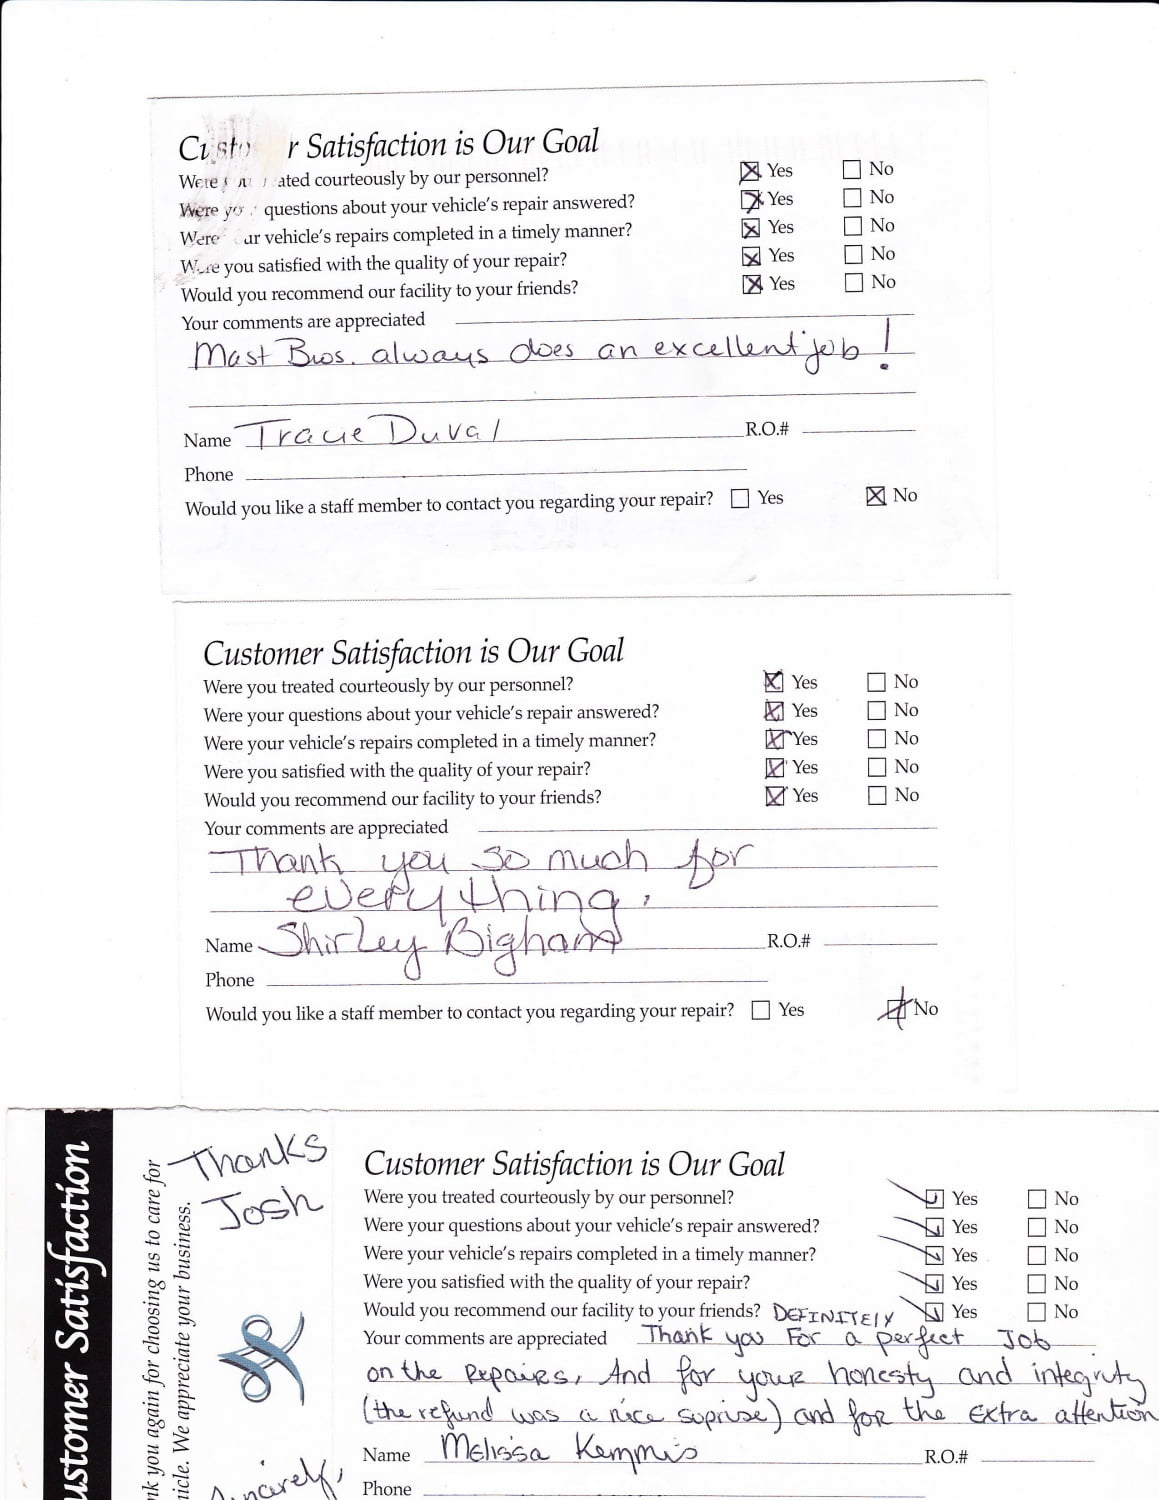 Customer Satisfaction is Our Goal
Were you treated courteously by our personnel? Yes No
Were your questions about your vehicle's repair answered? Yes No
Were your vehicle's repairs completed in a timely manner? Yes No
Were you satisfied with the quality of your repair? Yes No
Would you recommend our facility to your friends? Yes No
Your comments are appreciated
Mast Bros. always does an excellent job!
Name Tracie Duval R.O.#
Phone
Would you like a staff member to contact you regarding your repair? Yes No
Customer Satisfaction is Our Goal
Were you treated courteously by our personnel? Yes No
Were your questions about your vehicle's repair answered? Yes No
Were your vehicle's repairs completed in a timely manner? Yes No
Were you satisfied with the quality of your repair? Yes No
Would you recommend our facility to your friends? Yes No
Your comments are appreciated
Thank you so much for
everything.
Name Shirley Bigham R.O.#
Phone
Would you like a staff member to contact you regarding your repair? Yes No
ustomer Satisfaction
nk you again for choosing us to care for
icle. We appreciate your business.
Thanks
Josh
Sincerely,
Customer Satisfaction is Our Goal
Were you treated courteously by our personnel? Yes No
Were your questions about your vehicle's repair answered? Yes No
Were your vehicle's repairs completed in a timely manner? Yes No
Were you satisfied with the quality of your repair? Yes No
Would you recommend our facility to your friends? DEFINITELY Yes No
Your comments are appreciated Thank you For a perfect Job
on the Repairs, And for your honesty and integrity
(the refund was a nice suprise) and for the extra attention
Name Melissa Kemmis R.O.#
Phone